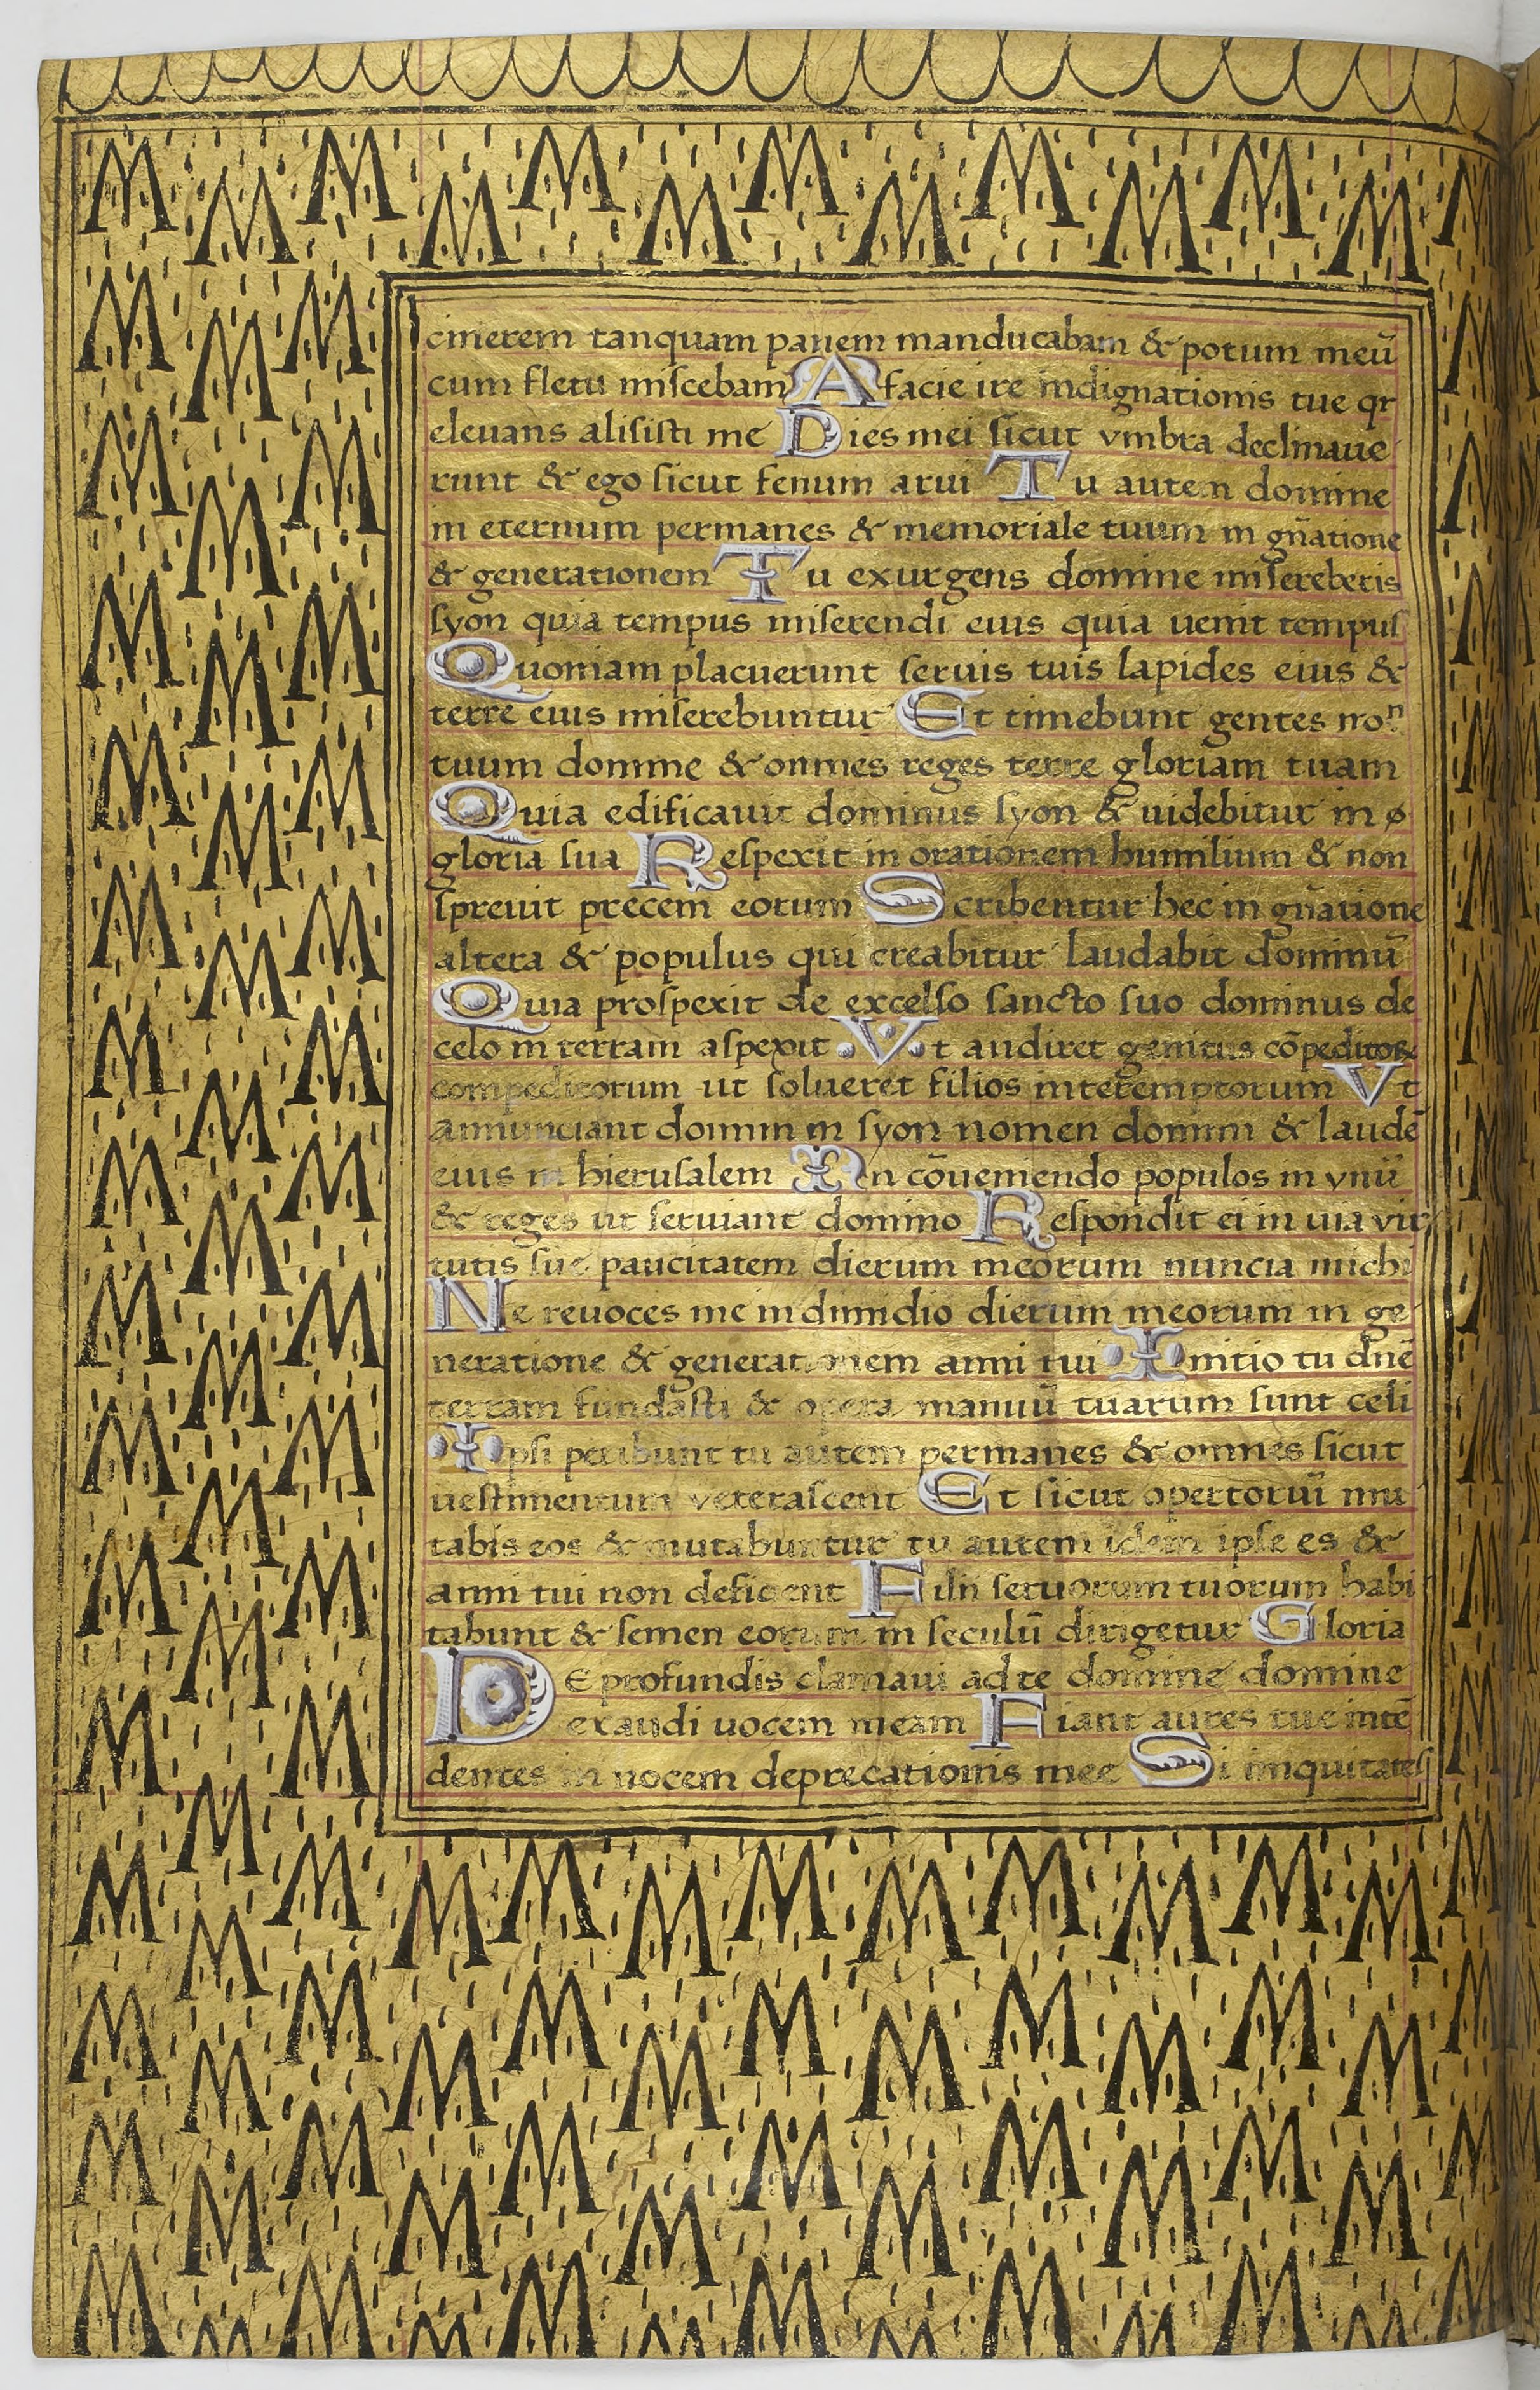 cinerem tanquam panem manducabam & potum meū
cum fletu miscebam A facie ire indignationis tue qr
eleuans alisisti me Dies mei sicut vmbra declinaue
runt & ego sicut fenum arui Tu autem domine
in eternum permanes & memoriale tuum in gñatione
& generationem Tu exurgens domine misereberis
syon quia tempus miserendi eius quia uenit tempus
Quoniam placuerunt seruis tuis lapides eius &
terre eius miserebuntur Et timebunt gentes noⁿ
tuum domine & omnes reges terre gloriam tuam
Quia edificauit dominus syon & uidebitur in
gloria sua Respexit in orationem humilium & non
spreuit precem eorum Scribentur hec in gñatione
altera & populus qui creabitur laudabit dominū
Quia prospexit de excelso sancto suo dominus de
celo in terram aspexit Vt audiret gemitus cōpeditoꝝ
compeditorum ut solueret filios interemptorum Vt
annunciant domini in syon nomen domini & laudē
eius in hierusalem In cōueniendo populos in vnū
& reges ut seruiant domino Respondit ei in uia vir
tutis sue paucitatem dierum meorum nuncia michi
Ne reuoces me in dimidio dierum meorum in ge
neratione & generationem anni tui Initio tu dñe
terram fundasti & opera manuū tuarum sunt celi
Ipsi peribunt tu autem permanes & omnes sicut
uestimentum veterascent Et sicut opertoriū mu
tabis eos & mutabuntur tu autem idem ipse es &
anni tui non deficient Filii seruorum tuorum habi
tabunt & semen eorum in seculū dirigetur Gloria
De profundis clamaui ad te domine domine
exaudi uocem meam Fiant aures tue intē
dentes in uocem deprecationis mee Si iniquitates